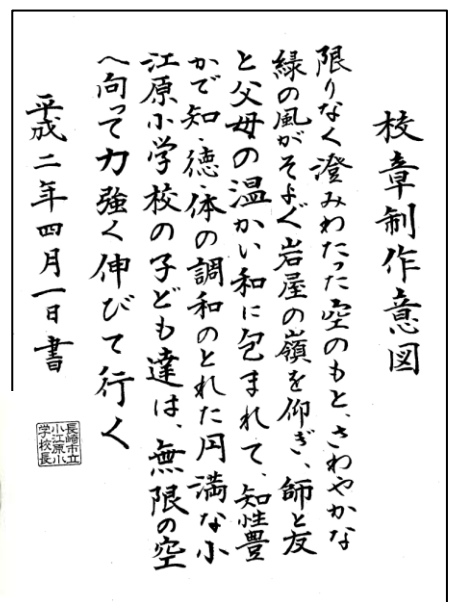 校章制作意図
限りなく澄みわたった空のもと、さわやかな
緑の風がそよぐ岩屋の嶺を仰ぎ、師と友
と父母の温かい和に包まれて、知性豊
かで知・徳・体の調和のとれた円満な小
江原小学校の子ども達は、無限の空
へ向って力強く伸びて行く
平成二年四月一日書
長崎市立
小江原小
学校長